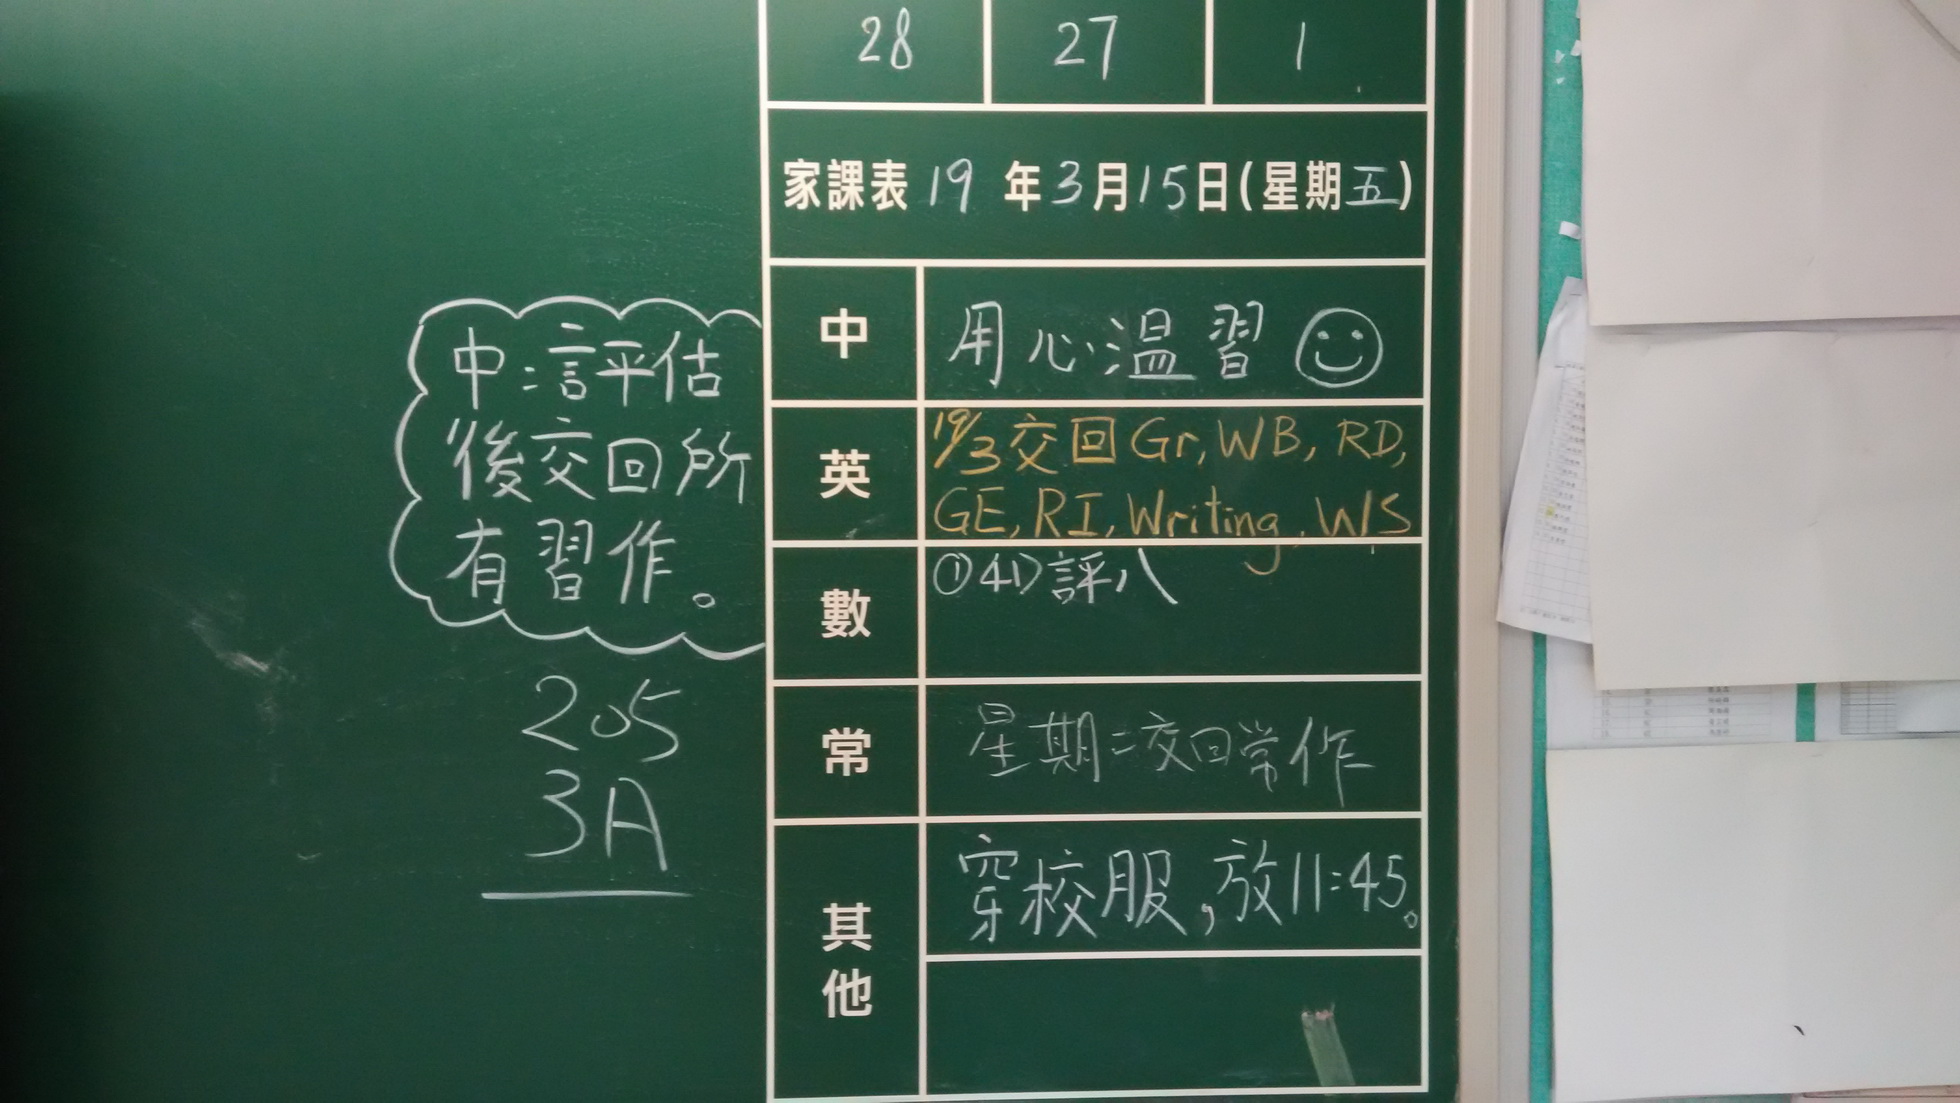 28 27 1
家課表 19 年 3 月 15 日 (星期 五)
中 用心溫習
英 19/3 交回 Gr, WB, RD,
GE, RI, Writing, WS
數 ① 4D 評八
常 星期二交回常作
其他 穿校服，放11:45。
中:言評估
後交回所
有習作。
205
3A